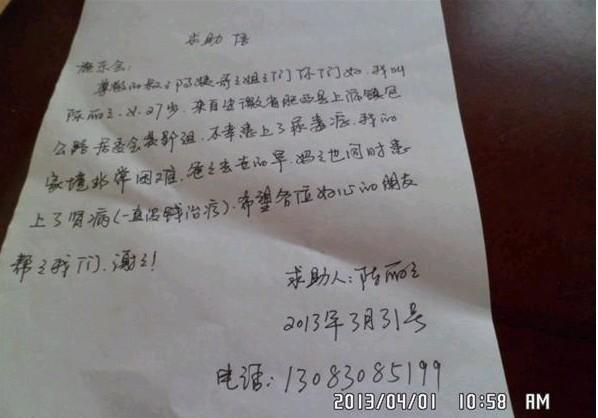 求助信
施乐会:
尊敬的叔叔阿姨哥哥姐姐们你们好,我叫
陈丽丽,女,27岁,来自安徽省肥西县上派镇包
公路居委会养路组,不幸患上了尿毒症,我的
家境非常困难,爸爸去世的早,妈妈也同时患
上了肾病(一直没钱治疗),希望各位好心的朋友
帮帮我们,谢谢!
求助人:陈丽丽
2013年3月31号
电话:13083085199
2013/04/01 10:58 AM